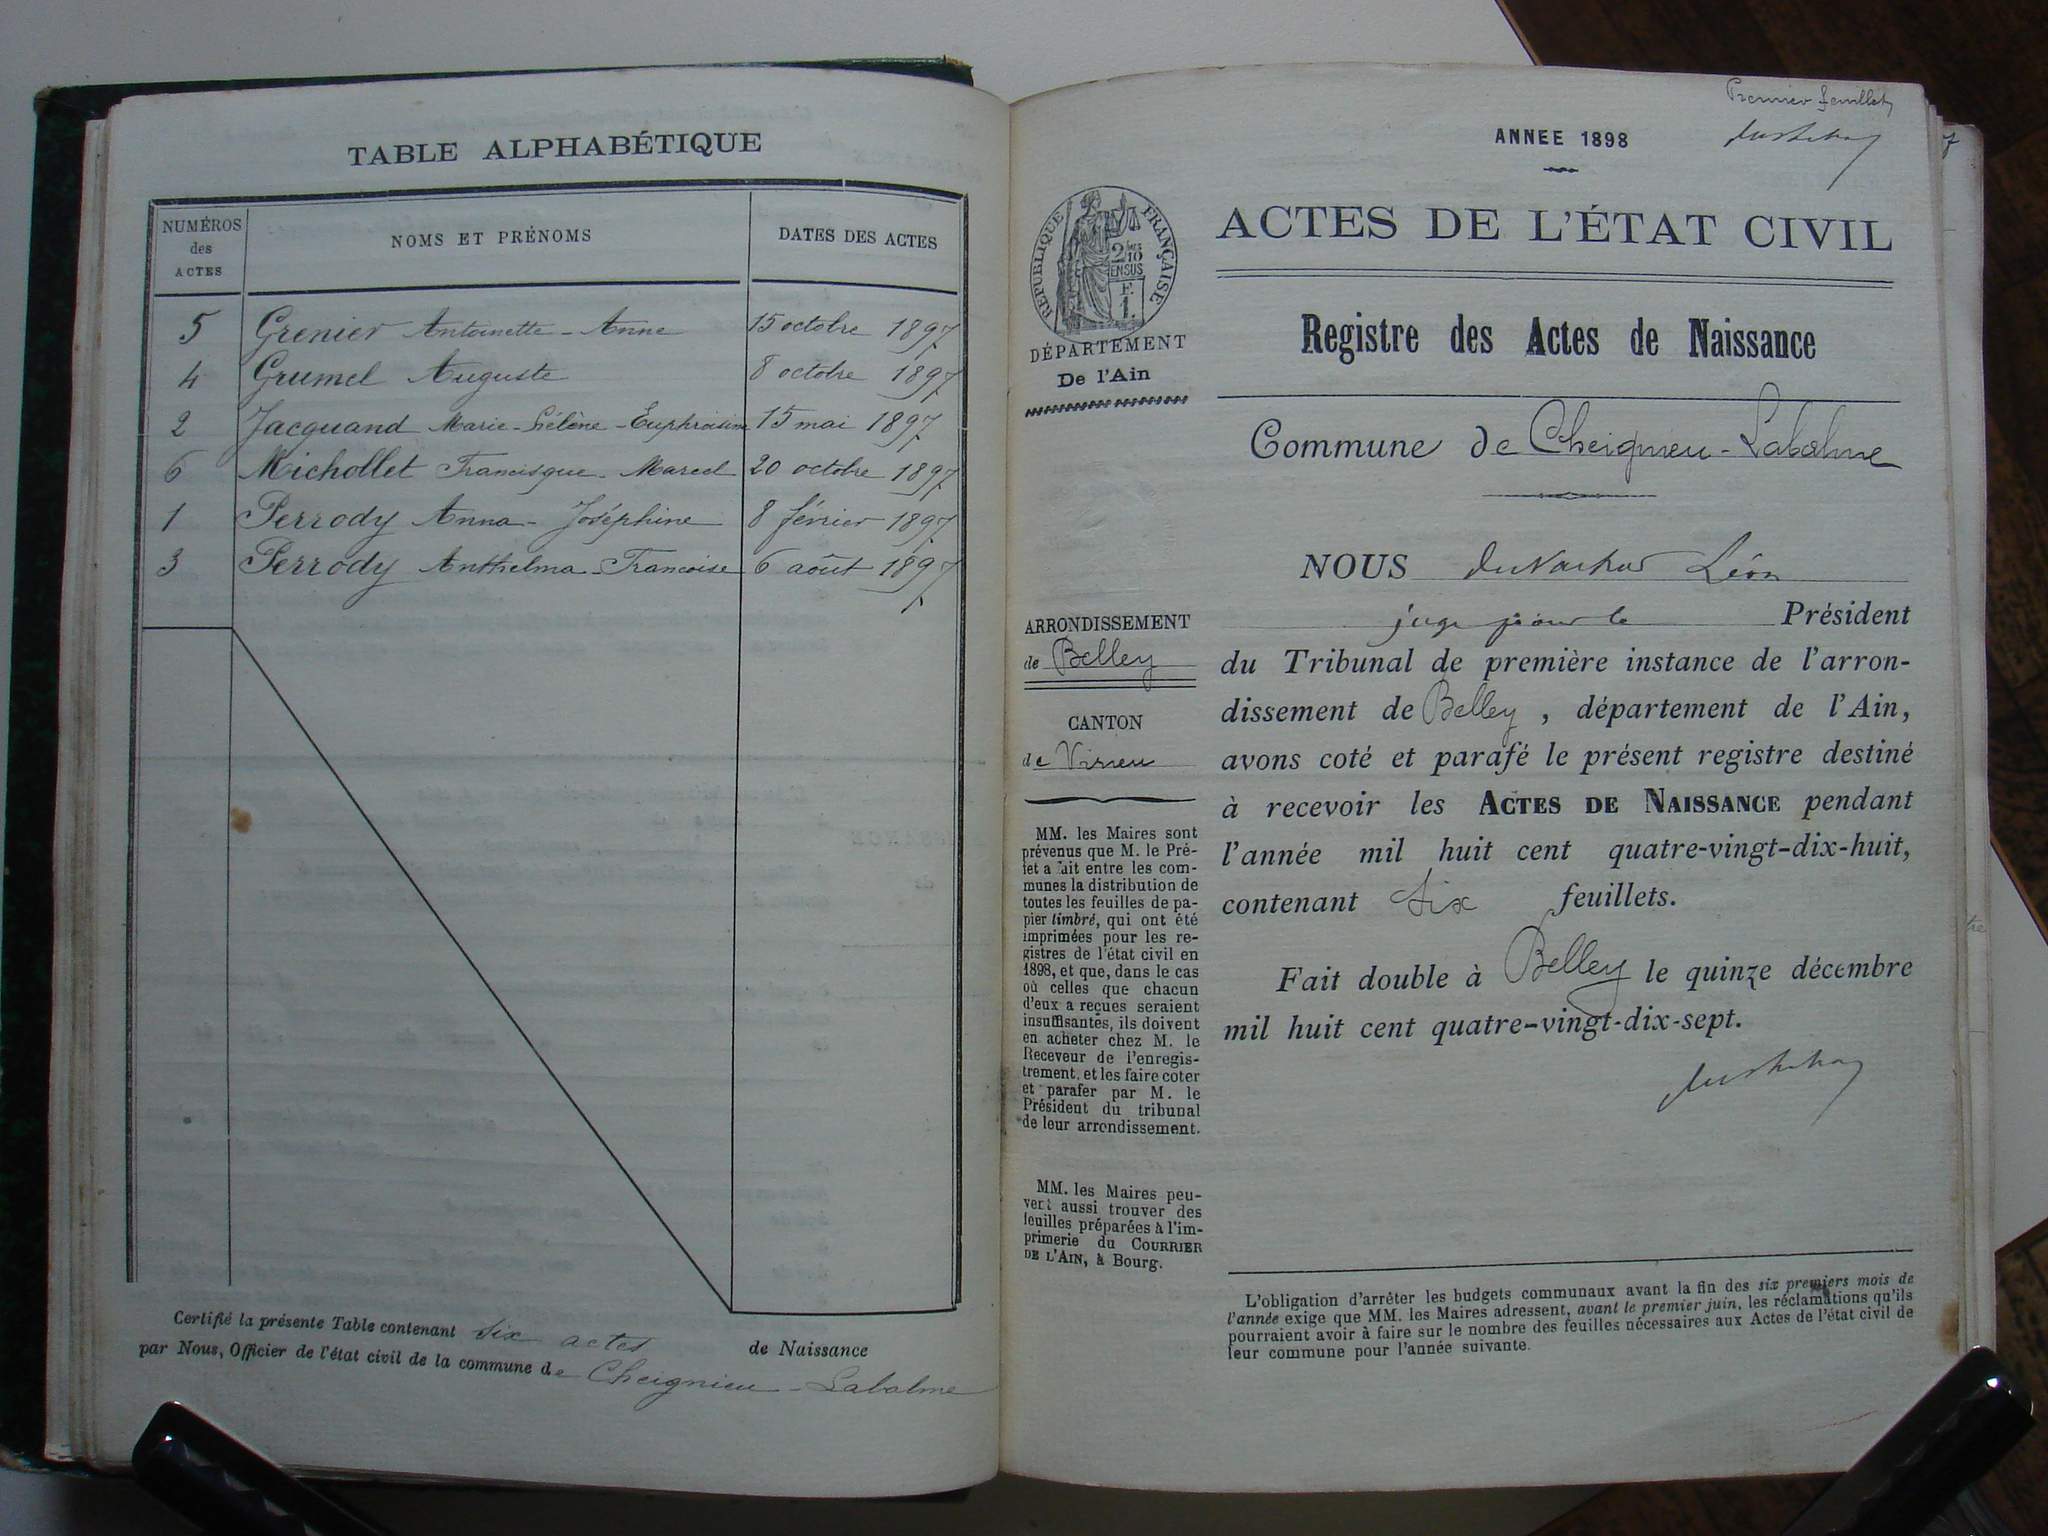 TABLE ALPHABÉTIQUE
NUMÉROS
des
ACTES
NOMS ET PRÉNOMS
DATES DES ACTES
5 Grenier Antoinette-Anne 15 octobre 1897
4 Grumel Auguste 8 octobre 1897
2 Jacquand Marie-Hélène-Euphroisine 15 mai 1897
6 Michollet Francisque-Marcel 20 octobre 1897
1 Perrody Anna-Joséphine 8 février 1897
3 Perrody Anthelma-Francoise 6 août 1897
Certifié la présente Table contenant six actes de Naissance
par Nous, Officier de l'état civil de la commune de Cheignieu-Labalme
Premier feuillet
ANNEE 1898
RÉPUBLIQUE FRANÇAISE
2/10
EN SUS
F.
1.
DÉPARTEMENT
De l'Ain
ACTES DE L'ÉTAT CIVIL
Registre des Actes de Naissance
Commune de Cheignieu-Labalme
ARRONDISSEMENT
de Belley
CANTON
de Virieu
MM. les Maires sont
prévenus que M. le Pré-
fet a fait entre les com-
munes la distribution de
toutes les feuilles de pa-
pier timbré, qui ont été
imprimées pour les re-
gistres de l'état civil en
1898, et que, dans le cas
où celles que chacun
d'eux a reçues seraient
insuffisantes, ils doivent
en acheter chez M. le
Receveur de l'enregis-
trement, et les faire coter
et parafer par M. le
Président du tribunal
de leur arrondissement.
MM. les Maires peu-
vent aussi trouver des
feuilles préparées à l'im-
primerie du COURRIER
DE L'AIN, à Bourg.
NOUS Léon
juge pour le Président
du Tribunal de première instance de l'arron-
dissement de Belley, département de l'Ain,
avons coté et parafé le présent registre destiné
à recevoir les ACTES DE NAISSANCE pendant
l'année mil huit cent quatre-vingt-dix-huit,
contenant six feuillets.
Fait double à Belley le quinze décembre
mil huit cent quatre-vingt-dix-sept.
L'obligation d'arrêter les budgets communaux avant la fin des six premiers mois de
l'année exige que MM. les Maires adressent, avant le premier juin, les réclamations qu'ils
pourraient avoir à faire sur le nombre des feuilles nécessaires aux Actes de l'état civil de
leur commune pour l'année suivante.